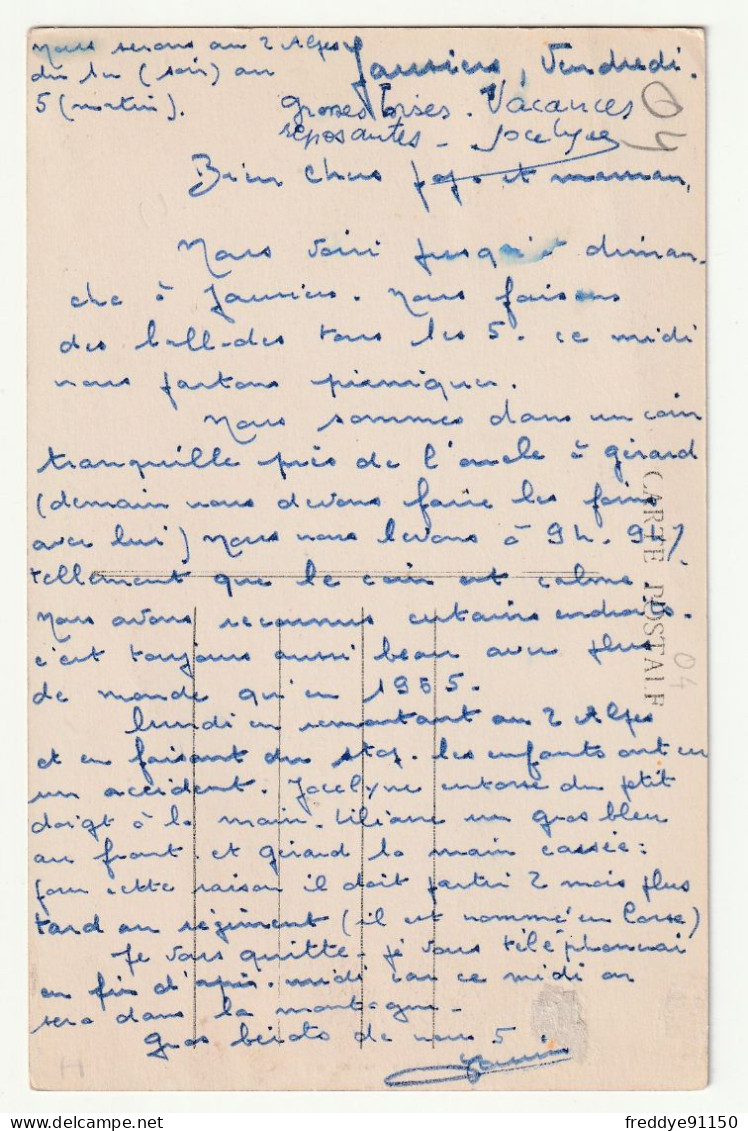 Nous serons au 2 Alpes
du lu (soir) au
5 (matin).
Jausiers, Vendredi.
Grosses bises. Vacances
reposantes - Jocelyne
04
Bien chers papa et maman,
Nous voici jusqu'à diman-
che à Jausiers. Nous faisons
des ballades tous les 5. ce midi
nous partons pique niquer.
Nous sommes dans un coin
tranquille près de l'oncle à gérard
(demain nous devons faire les foins
avec lui) Nous nous levons à 9h.
tellement que le coin est calme.
Nous avons reconnus certains endroits.
c'est toujours aussi beau avec plus
de monde qu'en 1955.
lundi en remontant au 2 Alpes
et en faisant du stop. les enfants ont eu
un accident. Jocelyne entorse du ptit
doigt à la main. Liliane un gros bleu
au front. et gérard la main cassée:
pour cette raison il doit partir 2 mois plus
tard au régiment (il est nommé en Corse)
Je vous quitte - je vous téléphonerai
en fin d'après-midi car ce midi on
sera dans la montagne -
Gros bécots de nous 5
CARTE POSTALE
04
H
freddye91150